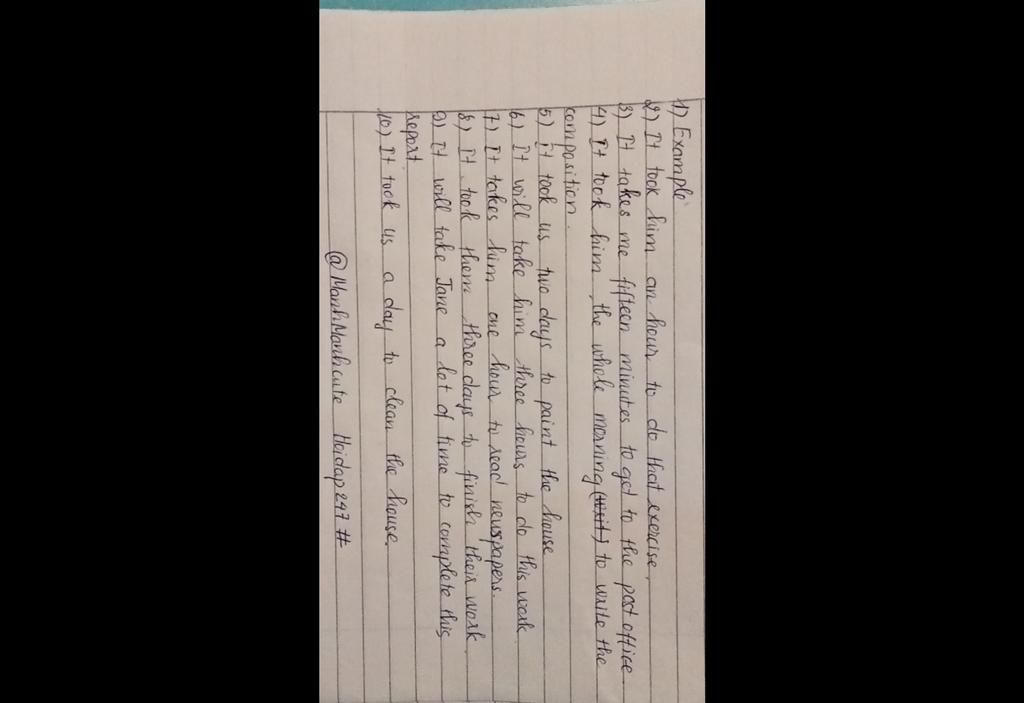 1) Example
2) It took him an hour to do that exercise.
3) It takes me fifteen minutes to get to the post office
4) It took him the whole morning (writ) to write the
composition.
5) It took us two days to paint the house
6) It will take him three hours to do this work
7) It takes him one hour to read newspapers.
8) It took them three days to finish their work
9) It will take Jane a lot of time to complete this
report
10) It took us a day to clean the house.
@ManhManhcute Hoidap247 #